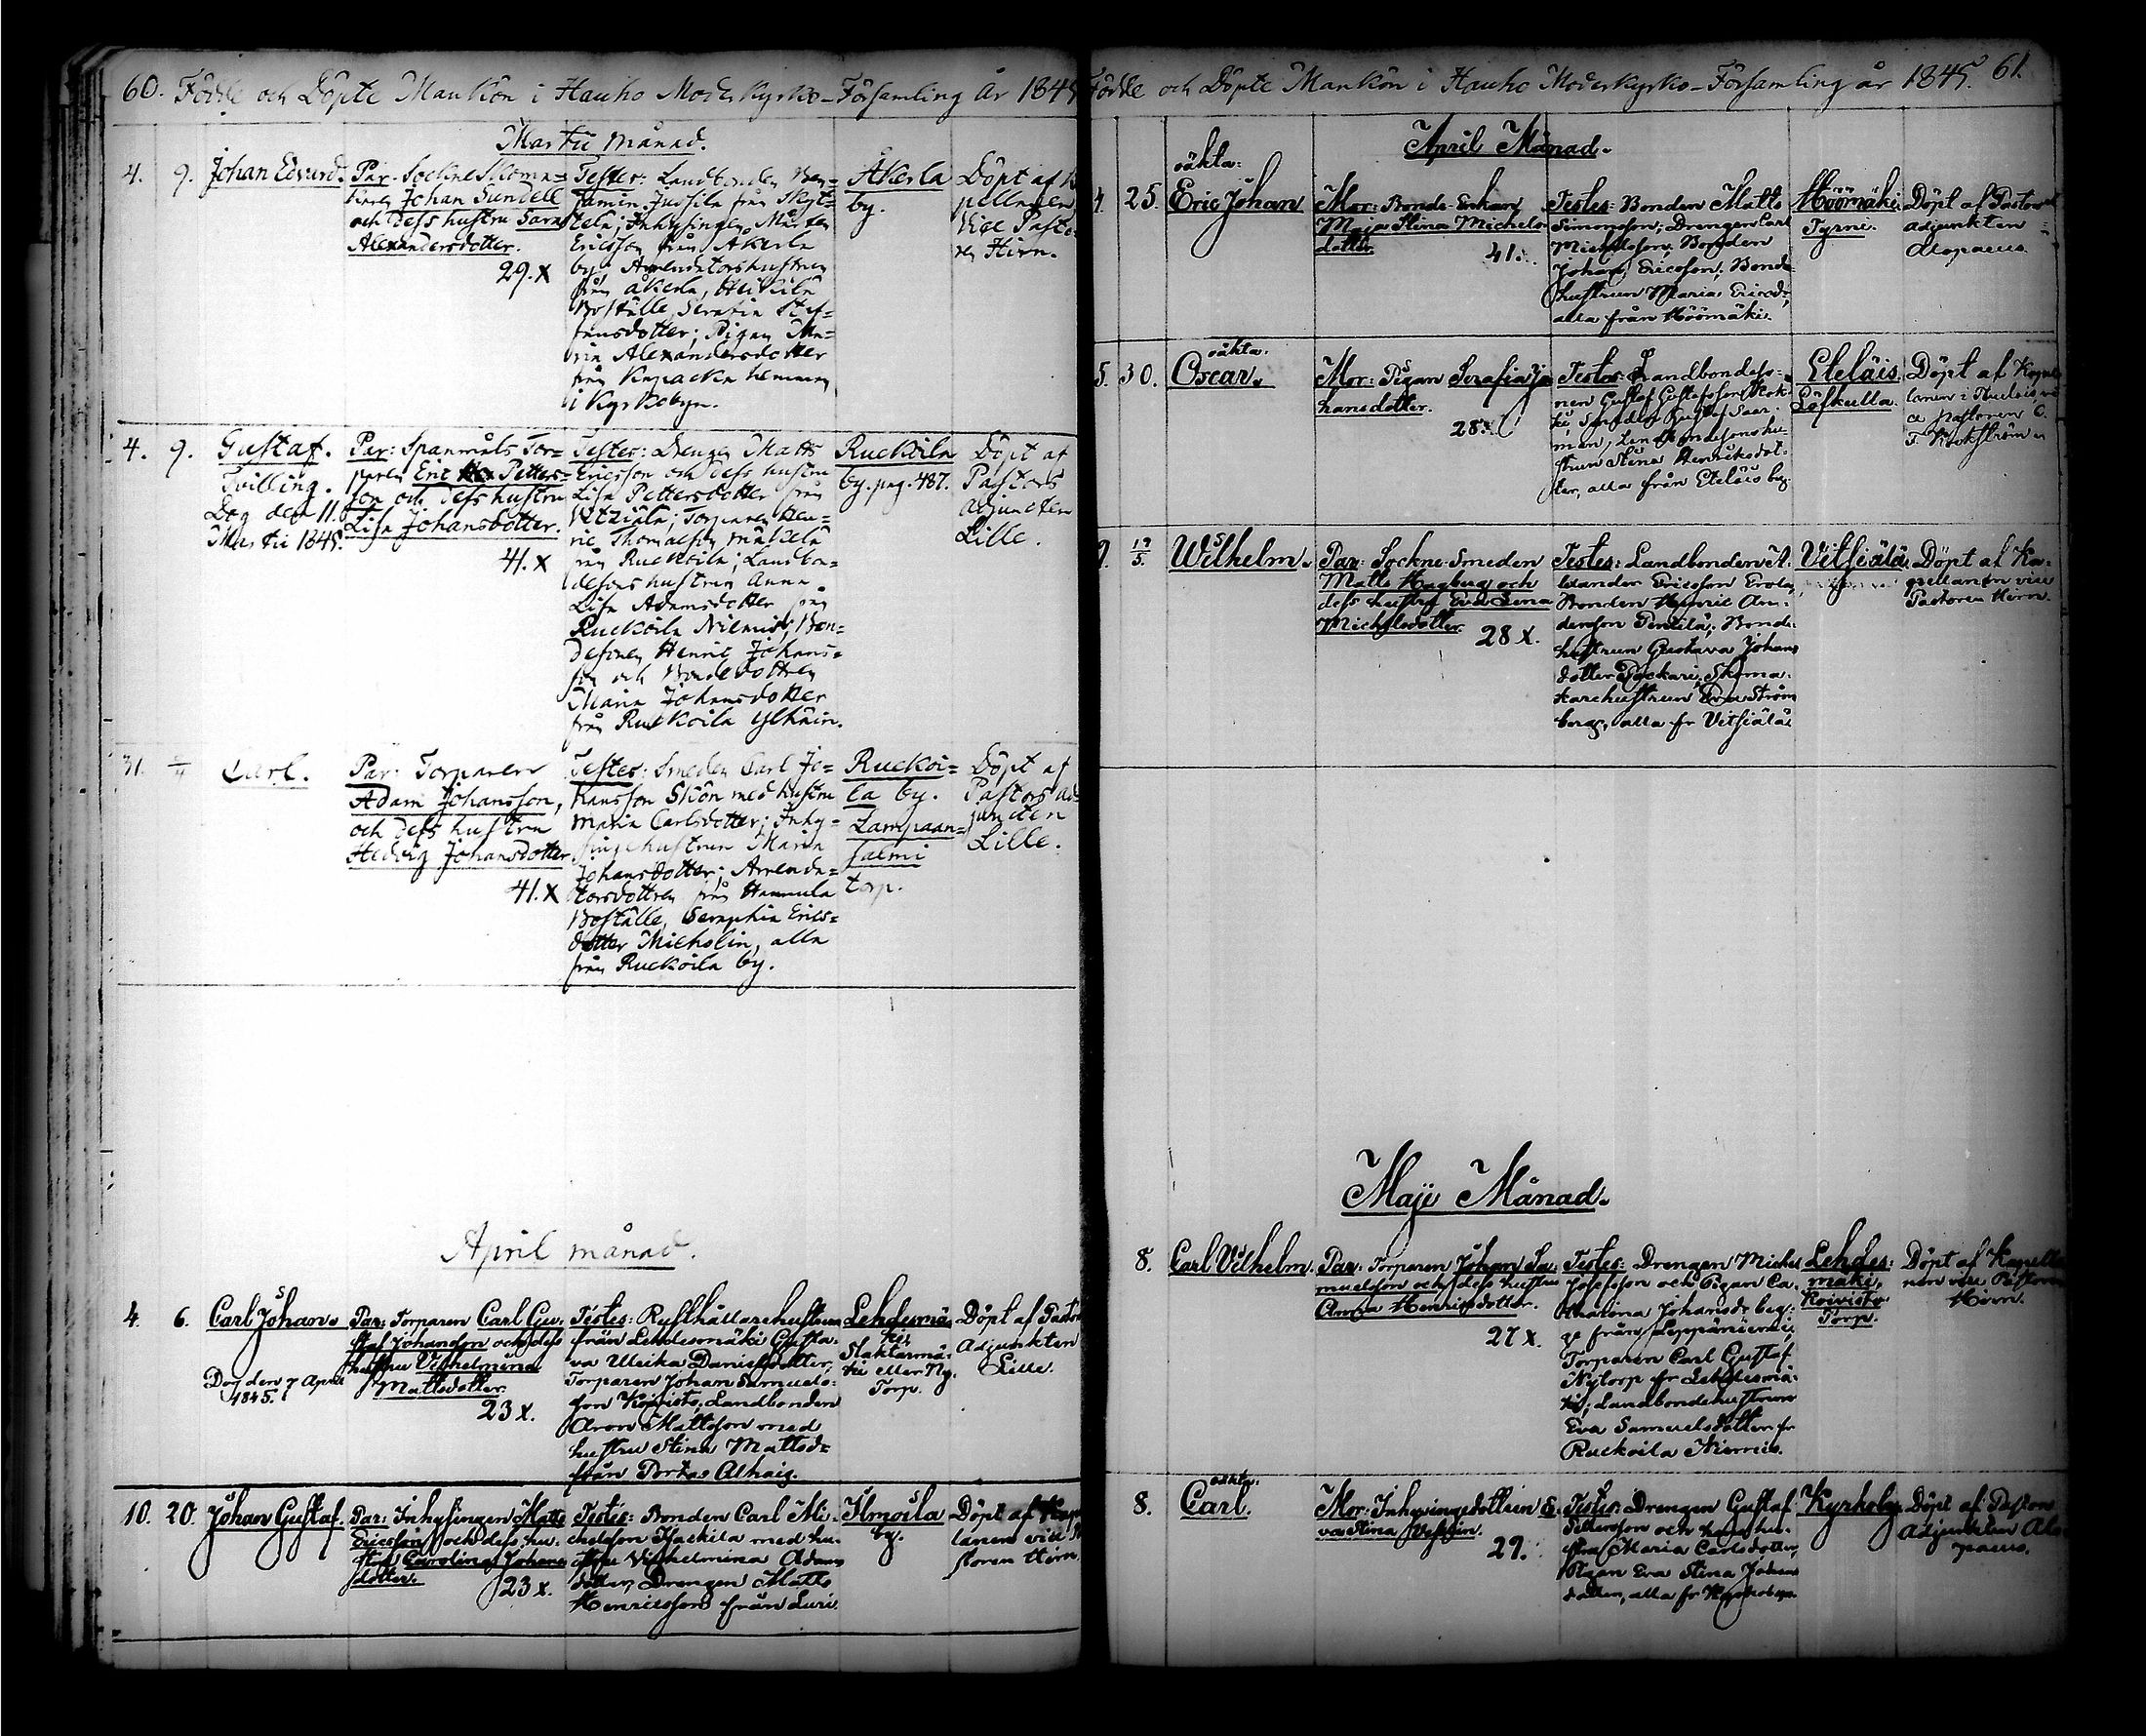 60. Födde och Döpte Mankön i Hauho Moderkyrko-Församling År 1845
Martii månad.
4. 9. Johan Edvard.
Par: Sockne Skoma=
karen Johan Sundell
och dess hustru Sara
Alexandersdotter.
29. x
Testes: Landbonden Ben=
jamin Jussila från Skyt=
tela; Inhysingen Mårten
Ericsson från Åkerla
by; Arrendatorshustrun
från Åkerla, Heikilä
Boställe, Serafia Stef=
fansdotter; Pigan Ma=
ria Alexandersdotter
från hemman
i Kyrkobyn.
Åkerla
by.
Döpt af
pellanen
Vice Pasto
ren Hirn.
4. 9. Gustaf.
Tvilling.
Dog den 11.
Martii 1845.
Par: Spanmåls Tor=
paren Eric Petters=
son och dess hustru
Lisa Johansdotter.
41. x
Testes: Drengen Matts
Ericsson och dess hustru
Lisa Pettersdotter från
Vitziälä; Torparen Hen=
ric Thomasson Mäkelä
från Ruckoila; Landbon=
desons hustrun Anna
Lisa Adamsdotter från
Ruckoila Niemis; Bon=
desonen Henric Johans=
son och Bondedottren
Maria Johansdotter
från Ruckoila Ylhäin.
Ruckoila
by. pag. 487.
Döpt af
Pastors
adjuncten
Lille.
31. /4 Carl.
Par: Torparen
Adam Johansson,
och dess hustru
Hedvig Johansdotter
41. x
Testes: Smeden Carl Jo=
hansson Skön med hustru
Maria Carlsdotter; Inhy=
singehustrun Maria
Johansdotter; Arrenda=
torsdottren från Hannula
Boställe, Seraphia Erics=
dotter Michelin, alla
från Ruckoila by.
Ruckoi=
la by.
Lampaan=
salmi
torp.
Döpt af
Pastors ad=
juncten
Lille.
April månad.
4. 6. Carl Johan.
Dog den 7 April
1845.
Par: Torparen Carl Gu-
staf Johansson och dess
hustru Vilhelmina
Mattsdotter.
23 x.
Testes: Rusthållarehustrun
från Lehdesmäki Gusta-
va Ulrika Danielsdotter,
Torparen Johan Samuels-
son Koivisto, Landbonden
Aron Mattsson med
hustru Stina Mattsd=
från Portas Alhaig.
Lehdesmä-
ki
Slaktarmä-
ki eller Ny-
Torp.
Döpt af Pastors
Adjunkten
Lille.
10. 20. Johan Gustaf.
Par: Inhysingen Matts
Ericsson och dess hu-
stru Carolina Johans
dotter.
23 x.
Testes: Bonden Carl Mi-
chelsson Heikilä med hu-
stru Vilhelmina Adams
dotter, Drengen Matts
Henricsson från Luri
Ilmoila
by.
Döpt af Kapel
lanen vice Pa
storen Hirn
Födde och Döpte Mankön i Hauho Moderkyrko-Församling år 1845. 61.
April Månad.
4. 25. oäkta:
Eric Johan
Mor: Bonde-Enkan
Maja Stina Michels-
dotter.
41.
Testes: Bonden Matts
Simonsson; Drengen Carl
Michelsson; Bonden
Johan Ericsson; Bonde-
hustrun Maria Ericsdr,
alla från Höömäki.
Höömäki
Tyrni.
Döpt af Pastors
adjunkten
Alopaeus.
5. 30. oäkta.
Oscar.
Mor: Pigan Serafia Jo
hansdotter.
28.
Testes: Landbondeso-
nen Gustaf Gustafsson
Gustaf Saari-
nen, Landbondesonshu-
strun Stina Henriksdot-
ter, alla från Eteläis by.
Eteläis
Löfkulla.
Döpt af Kapel
lanen i
ce Pastoren C.
17/5. Wilhelm.
Par: Sockne-Smeden
Matts Hagberg och
dess hustru Eva Lena
Michelsdotter.
28 x.
Testes: Landbonden A-
lexander Ericsson Erola,
Bonden Henric An-
dersson Pentilä, Bonde-
hustrun Gustava Johans
dotter Packari, Skoma-
karehustrun Eva Ström
berg, alla fr Vitsiälä.
Vitsiälä
Döpt af Ka-
pellanen vice
Pastoren Hirn.
Maji Månad.
8. Carl Vilhelm.
Par: Torparen Johan Sa-
muelsson och dess hustru
Anna Henricsdotter.
27 x.
Testes: Drengen Michel
Josefsson och Pigan Ca-
tharina Johansdr beg-
ge från Leppäniemi,
Torparen Carl Gustaf
Nytorp fr Lehdesmä-
ki; Landbondehustrun
Eva Samuelsdotter fr
Ruckoila Niemis.
Lehdes-
mäki,
Koivisto
Torp.
Döpt af Kapella
nen vice Pastoren
Hirn.
8. oäkta.
Carl.
Mor: Inhysingedottern E-
va Stina
29.
Testes: Drengen Gustaf
och hans hu-
stru Maria Carlsdotter,
Pigan Eva Stina Johans
dotter, alla fr Kyrkobyn.
Kyrkoby
Döpt af Pastors
Adjunkten Alo
paeus.